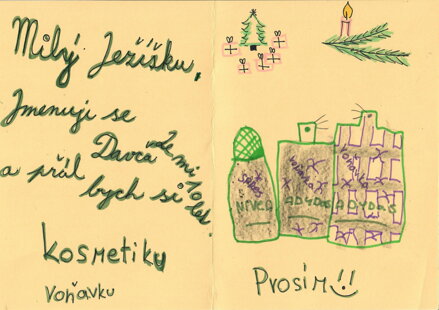 Milý Ježíšku,
Jmenuji se
Davča je mi 10 let
a přál bych si
kosmetiku
voňavku
NIVEA
ADYDAS
voňavka
ADYDAS
Prosim!!